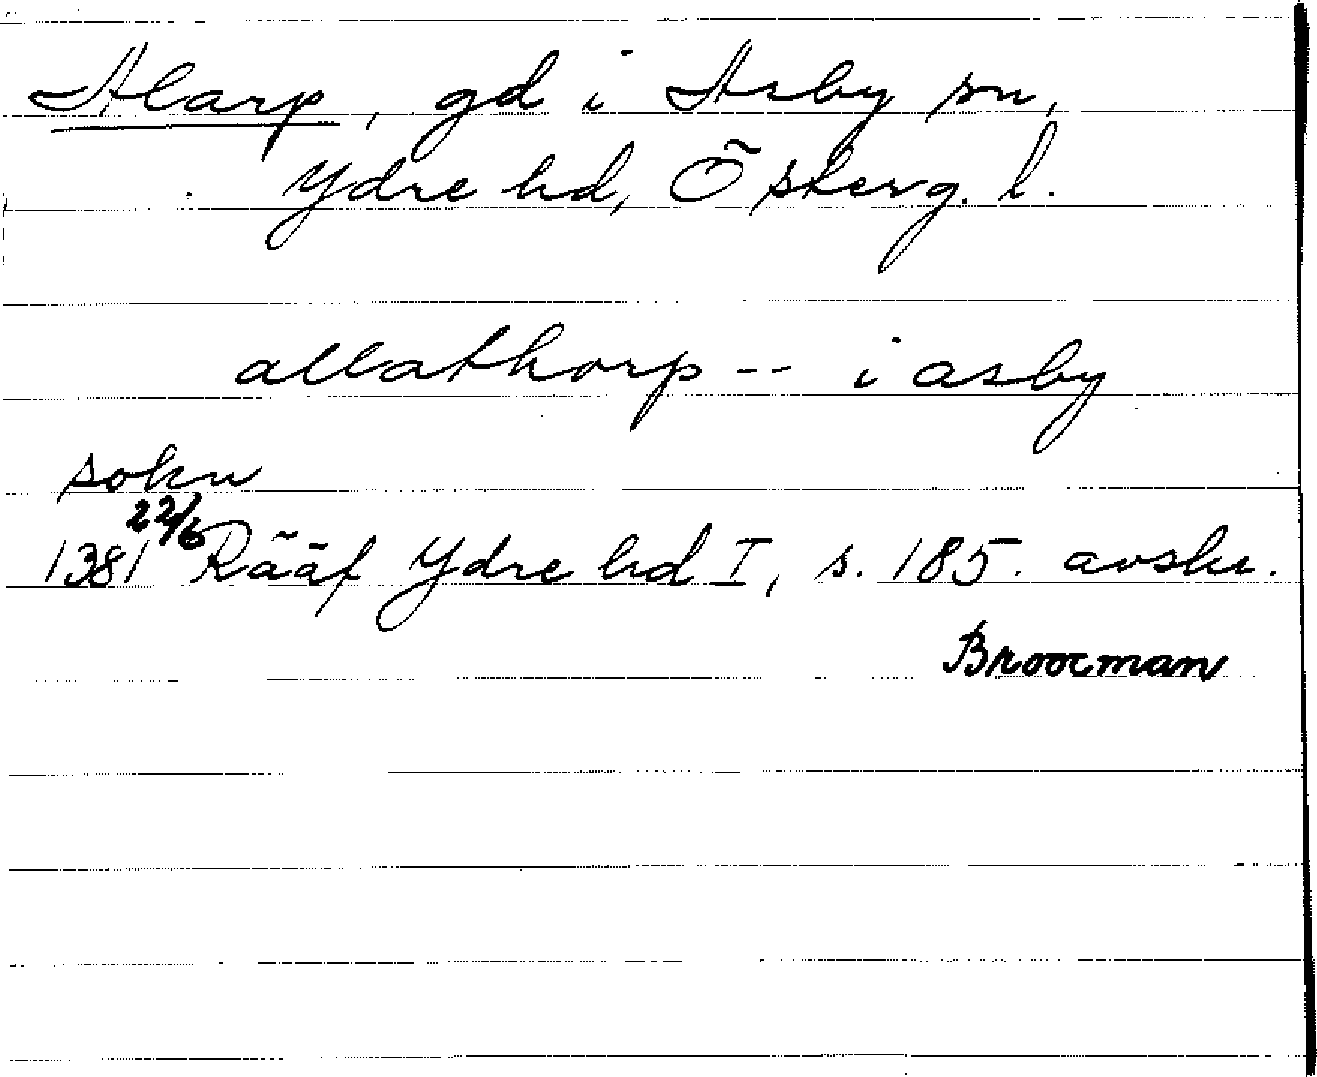 Alarp, gd i Asby sn,
Ydre hd, Österg. l.
allathorp -- i asby
sokn
22/6
1381 Rääf Ydre hd I, s. 185. avskr.
Broocman